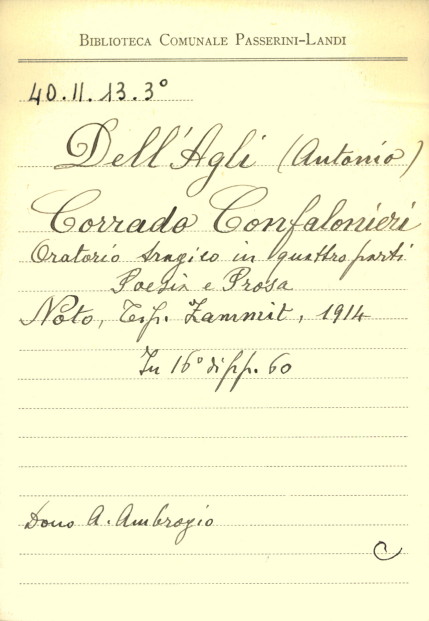 BIBLIOTECA COMUNALE PASSERINI-LANDI
40.II.13.3°
Dell'Agli (Antonio)
Corrado Confalonieri
Oratorio tragico in quattro parti
Poesia e Prosa
Noto, Tip. Zammit, 1914
In 16° di pp. 60
Dono A. Ambrogio
C